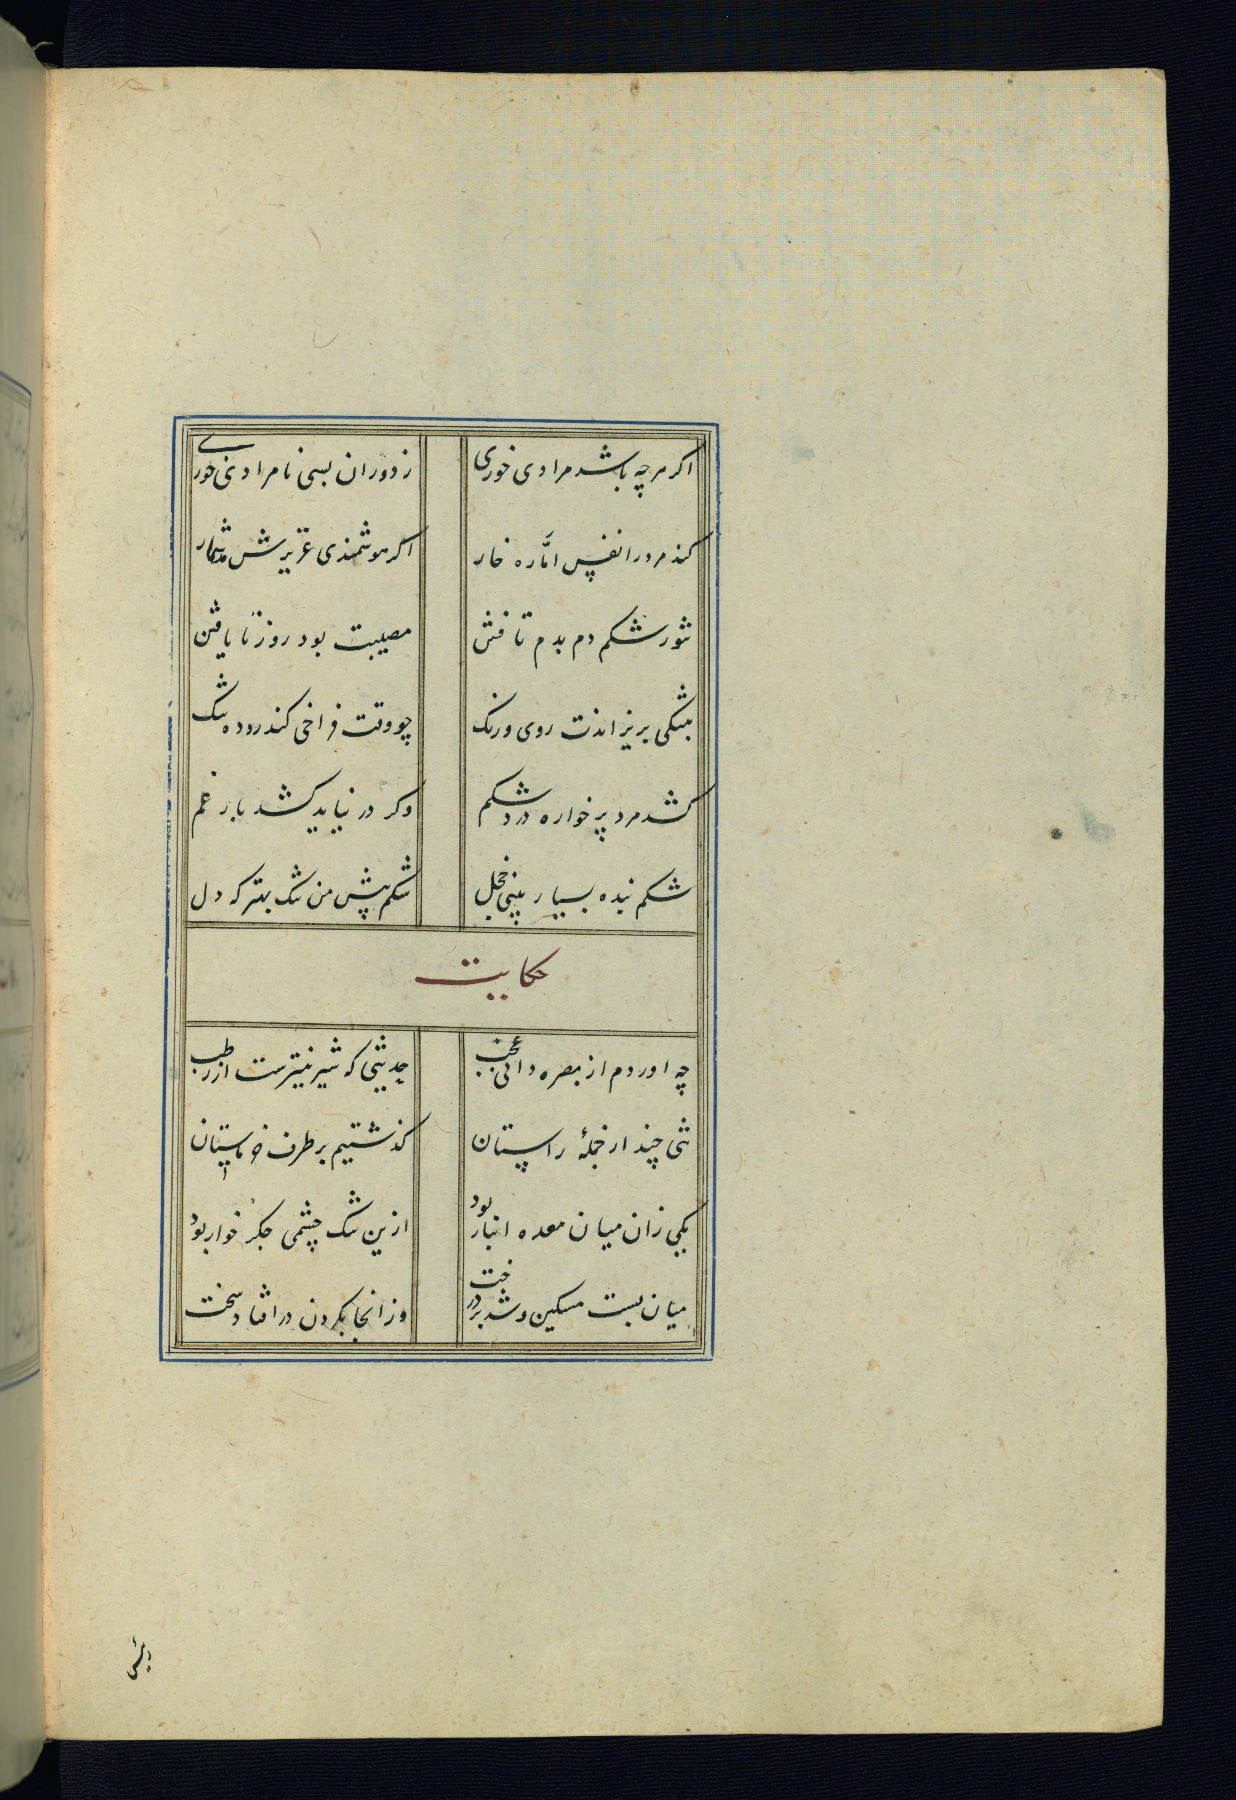 اگر هرچه باشد مرادی خوری ز دوران بسی نامرادی خوری
کند مرد را نفس امّاره خار اگر هوشمندی عزیزش مدار
تنور شکم دم بدم تافتن مصیبت بود روز نایافتن
بتنگی بریزاندت روی و رنگ چو وقت فراخی کند روده تنگ
کشد مرد پرخواره درد شکم وگر در نیابد کشد بار غم
شکم بنده بسیار بینی خجل شکم پیش من تنگ بهتر که دل
حکایت
چه اوردم از بصره دانی عجب حدیثی که شیرینترست از رطب
تنی چند از جملهٔ راستان گذشتیم بر طرف خرماستان
یکی زان میان معده انبار بود ازین تنگ چشمی جگر خوار بود
میان بست مسکین و شد بر درخت وزانجا بگردن درافتاد سخت